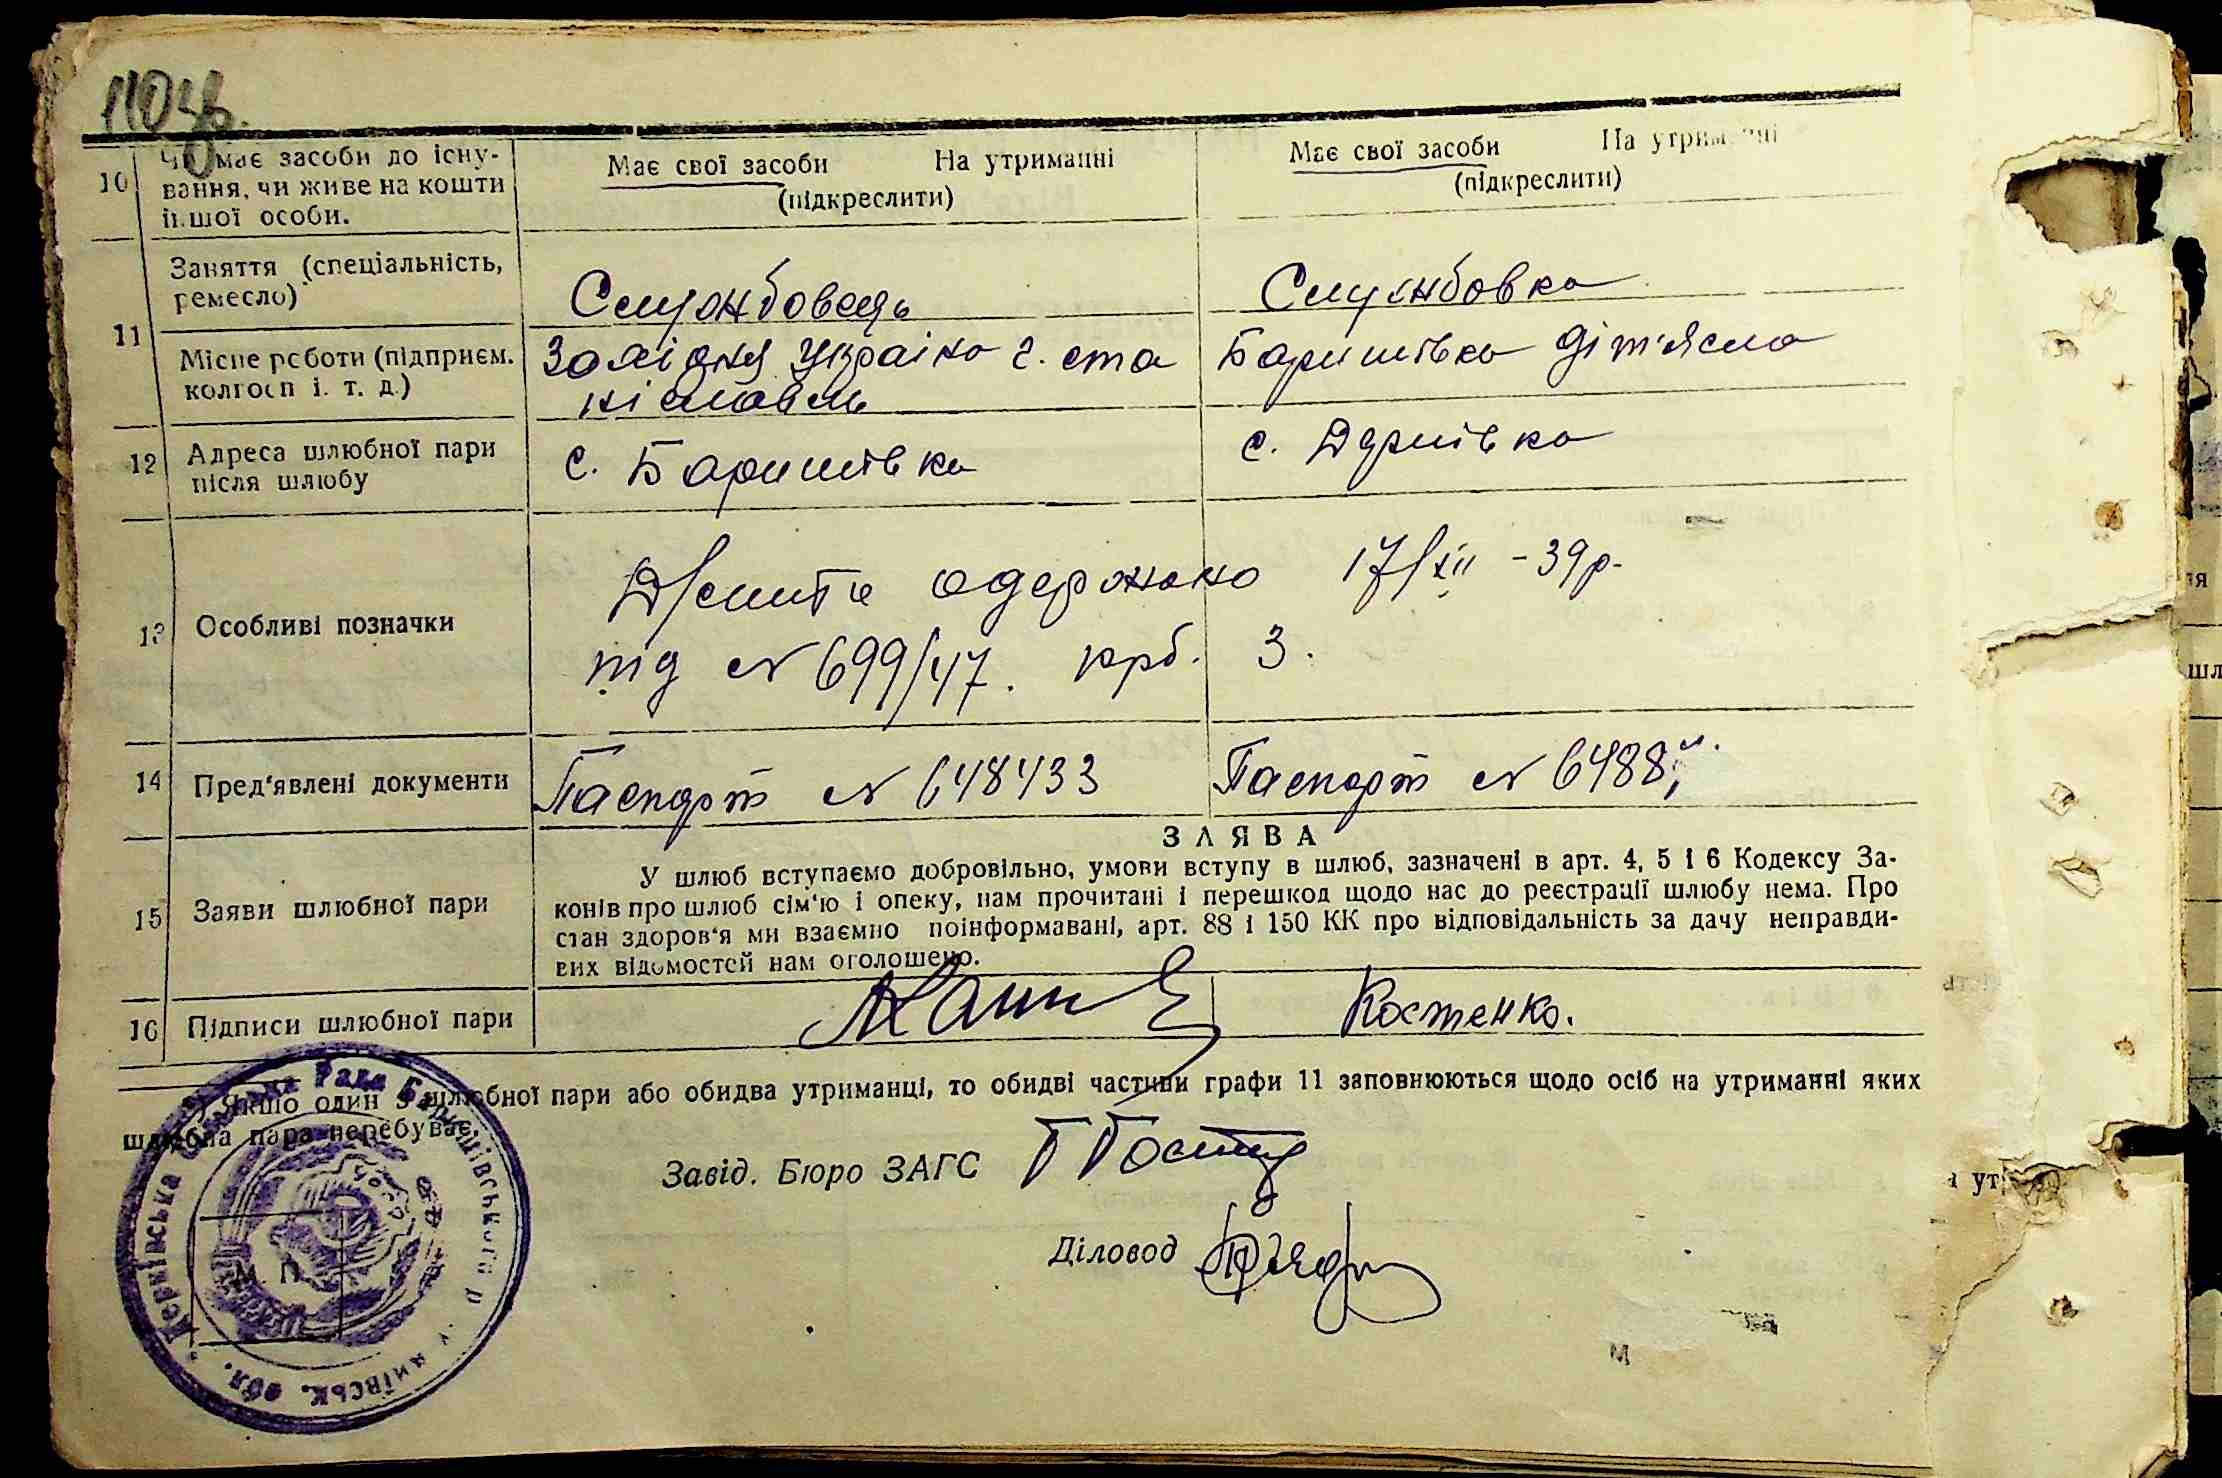 110 зв.
10 Чи має засоби до існу- Має свої засоби На утриманні Має свої засоби На утриманні
вання, чи живе на кошти (підкреслити) (підкреслити)
іншої особи.
11 Заняття (спеціальність, Службовець Службовка
ремесло)
Місце роботи (підприєм. Західня Україна г. ста Баришівка діт'ясла
колгосп і. т. д.) ніславль
12 Адреса шлюбної пари с. Баришівка с. Дернівка
після шлюбу
13 Особливі позначки одержано 17/XII - 39 р.
№ 699/47. крб. 3.
14 Пред'явлені документи Паспорт № 648433 Паспорт № 6488
ЗАЯВА
15 Заяви шлюбної пари У шлюб вступаємо добровільно, умови вступу в шлюб, зазначені в арт. 4, 5 і 6 Кодексу За-
конів про шлюб сім'ю і опеку, нам прочитані і перешкод щодо нас до реєстрації шлюбу нема. Про
стан здоров'я ми взаємно поінформавані, арт. 88 і 150 КК про відповідальність за дачу неправди-
вих відомостей нам оголошено.
16 Підписи шлюбної пари Костенко.
Якщо один з шлюбної пари або обидва утриманці, то обидві частини графи 11 заповнюються щодо осіб на утриманні яких
шлюбна пара перебуває.
Завід. Бюро ЗАГС
Діловод
М. П.
Рада Баришівського р
обл.